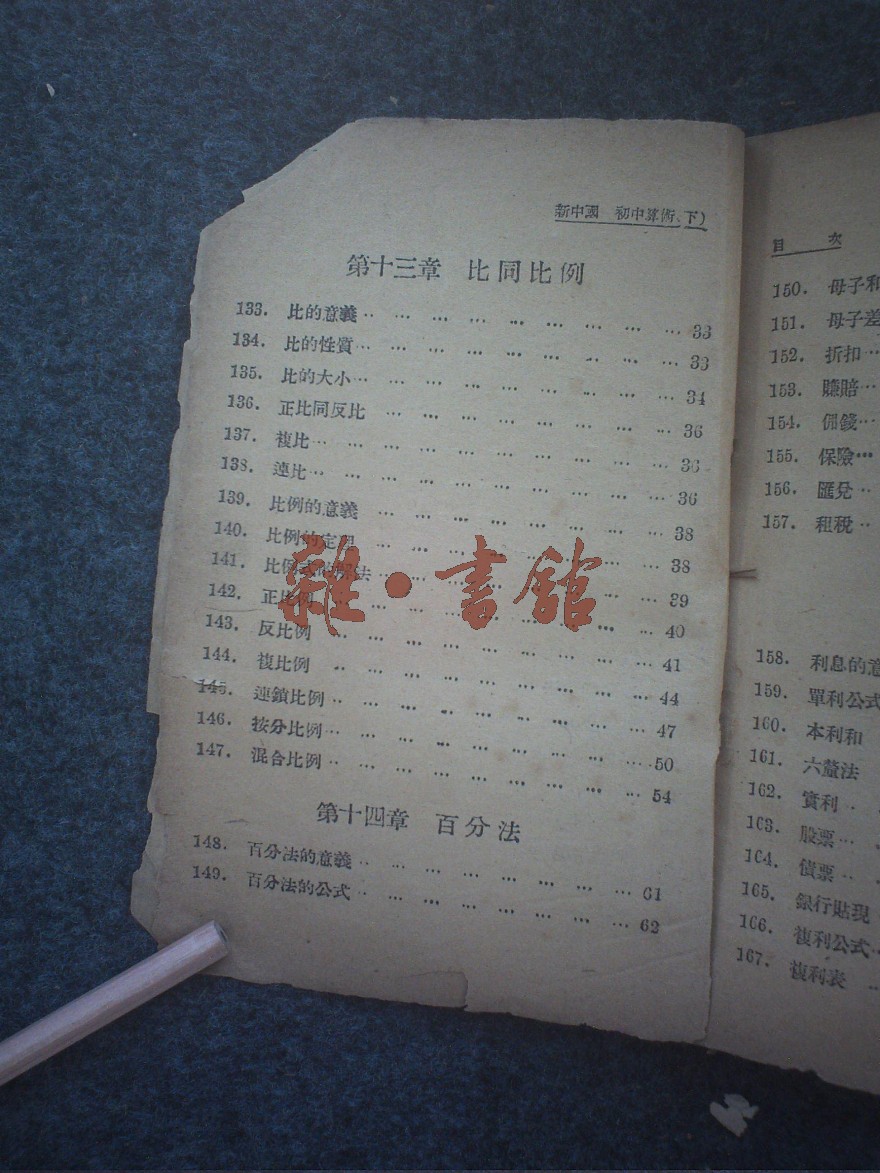 新中國 初中算術(下)
第十三章 比同比例
133. 比的意義 ‥ … … … … … … … … 33
134. 比的性質 … … … … … … … … … 33
135. 比的大小 … … … … … … … … … 34
136. 正比同反比 … … … … … … … … 36
137. 複比 … … … … … … … … … … 36
138. 連比 … … … … … … … … … … 36
139. 比例的意義 … … … … … … … … 38
140. 比例的定理 … … … … … … … … 38
141. 比例式的解法 … … … … … … … 39
142. 正比例 … … … … … … … … … 40
143. 反比例 … … … … … … … … … 41
144. 複比例 … … … … … … … … … 44
145. 連鎖比例 … … … … … … … … … 47
146. 按分比例 … … … … … … … … … 50
147. 混合比例 … … … … … … … … … 54
第十四章 百分法
148. 百分法的意義 … … … … … … … … 61
149. 百分法的公式 … … … … … … … … 62
目 次
150. 母子和
151. 母子差
152. 折扣 …
153. 賺賠 …
154. 佣錢 …
155. 保險 …
156. 匯兌 ‥
157. 租稅 ‥
158. 利息的意
159. 單利公式
160. 本利和
161. 六釐法
162. 實利 ‥
163. 股票 …
164. 債票 ‥
165. 銀行貼現
166. 複利公式
167. 複利表 ‥
雜·書館